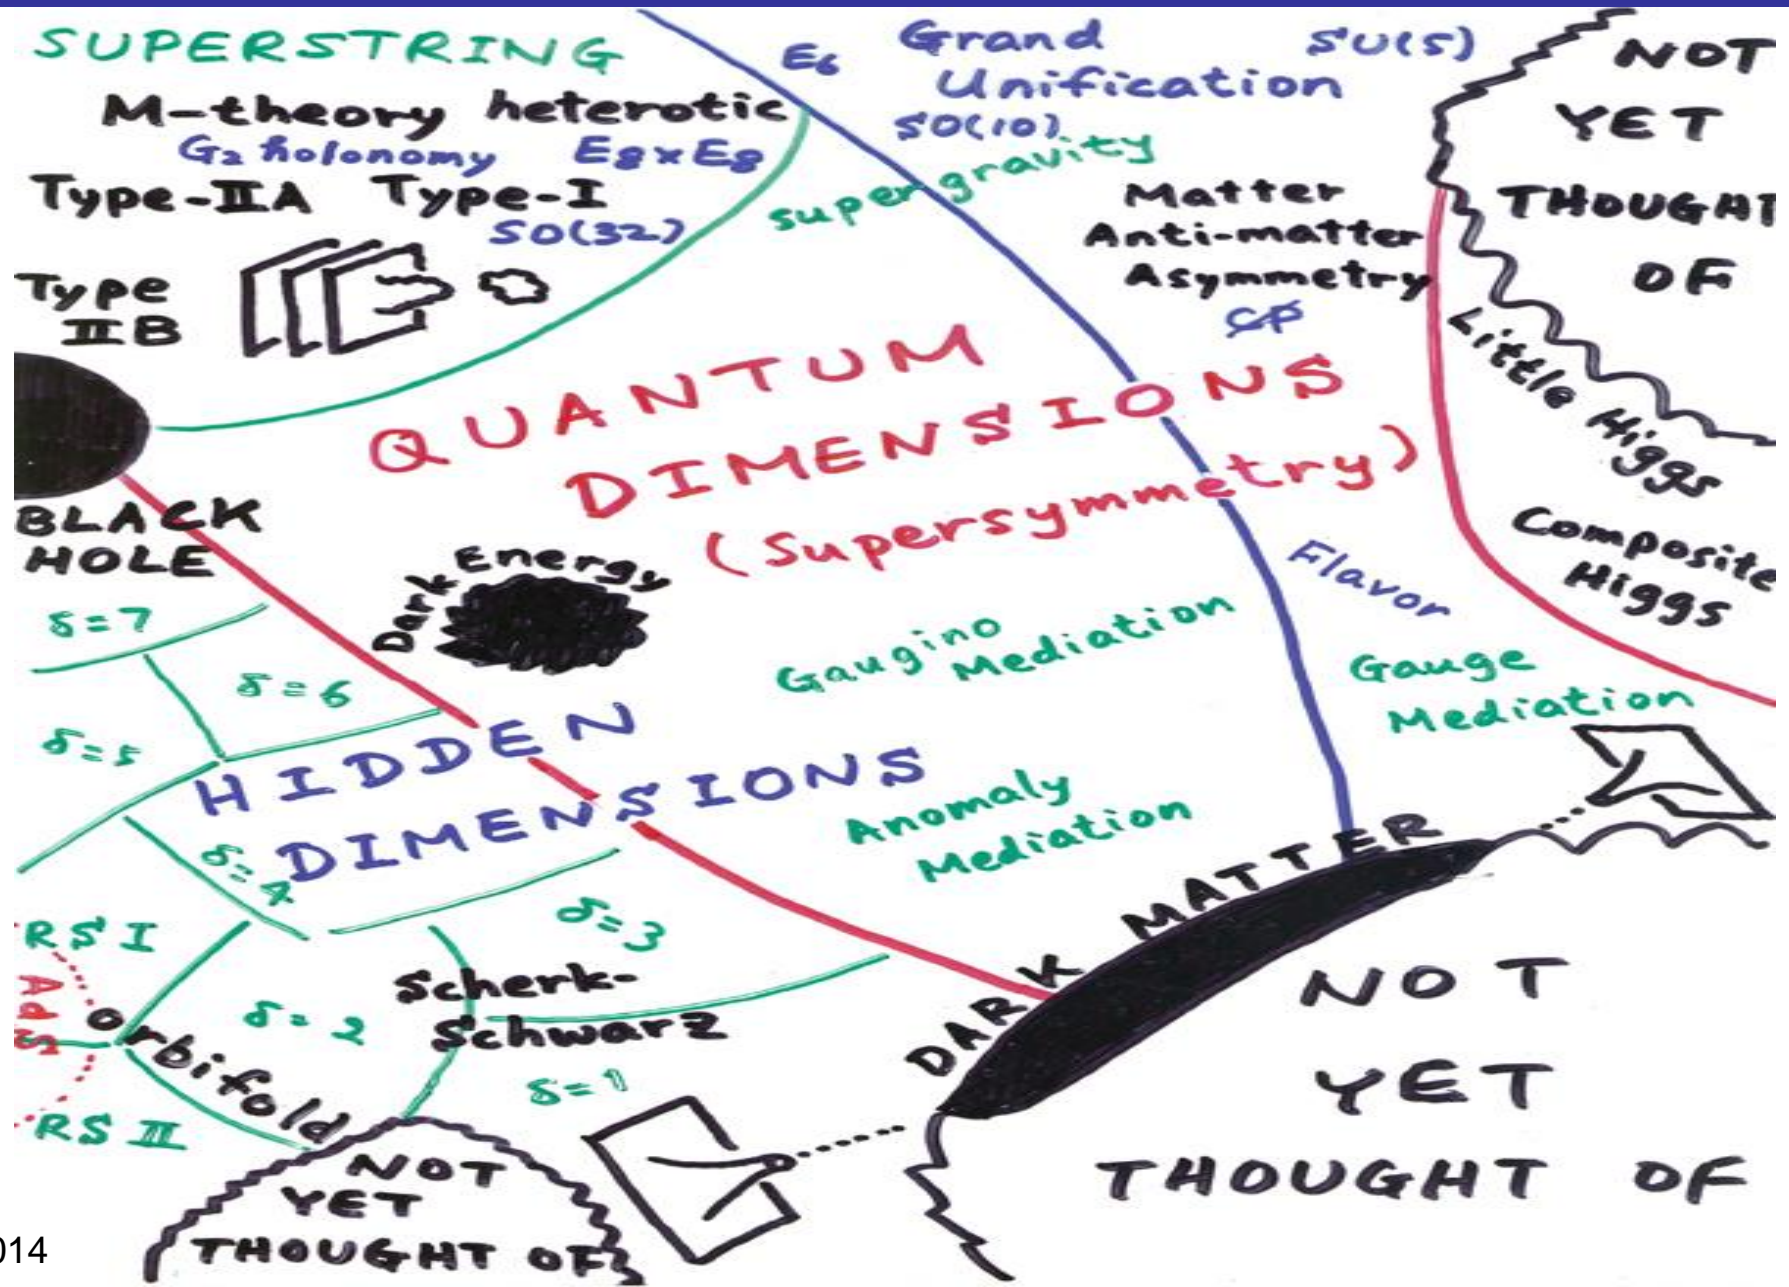 SUPERSTRING
M-theory heterotic
G₂ holonomy E8xE8
Type-IIA Type-I
SO(32)
Type
IIB
E₆
Grand
Unification
SU(5)
SO(10)
supergravity
Matter
Anti-matter
Asymmetry
CP
NOT
YET
THOUGHT
OF
Little Higgs
Composite
Higgs
QUANTUM
DIMENSIONS
(Supersymmetry)
BLACK
HOLE
Dark Energy
Flavor
Gaugino
Mediation
Gauge
Mediation
Anomaly
Mediation
δ=7
δ=6
δ=5
HIDDEN
DIMENSIONS
δ=4
δ=3
RS I
AdS
RS II
orbifold
δ=2
Scherk-
Schwarz
δ=1
DARK MATTER
NOT
YET
THOUGHT OF
NOT
YET
THOUGHT OF
014